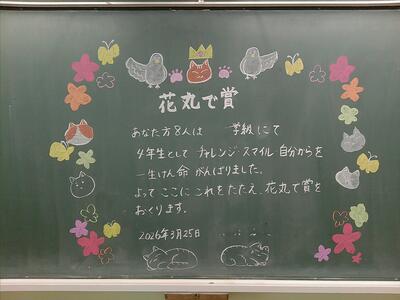 花丸で賞
あなた方8人は 学級にて
4年生として チャレンジ・スマイル・自分からを
一生けん命 がんばりました。
よって ここに これをたたえ、花丸で賞を
おくります。
2026年3月25日